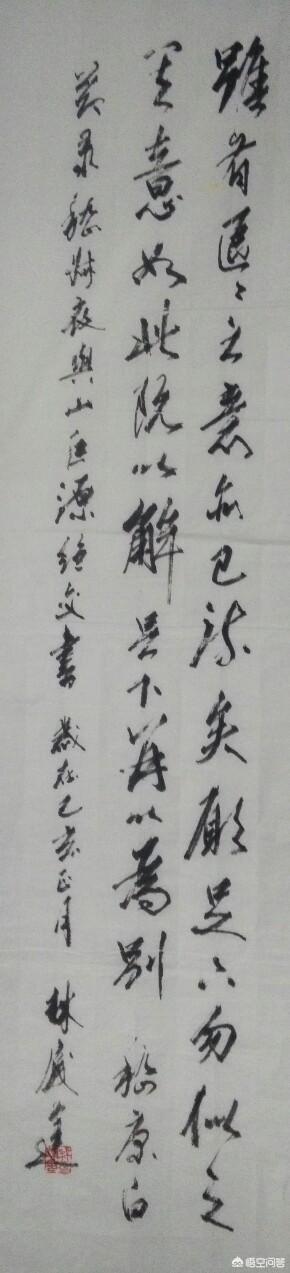 雖有區〻之意亦已疏矣願足下勿似之
其意如此既以解足下并以為別 嵇康白
节录嵇叔夜與山巨源絕交書 歲在己亥正月 林
悟空问答